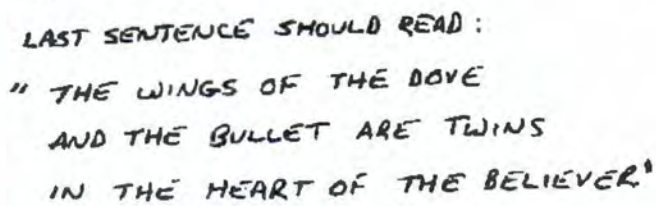 LAST SENTENCE SHOULD READ:
" THE WINGS OF THE DOVE
AND THE BULLET ARE TWINS
IN THE HEART OF THE BELIEVER"